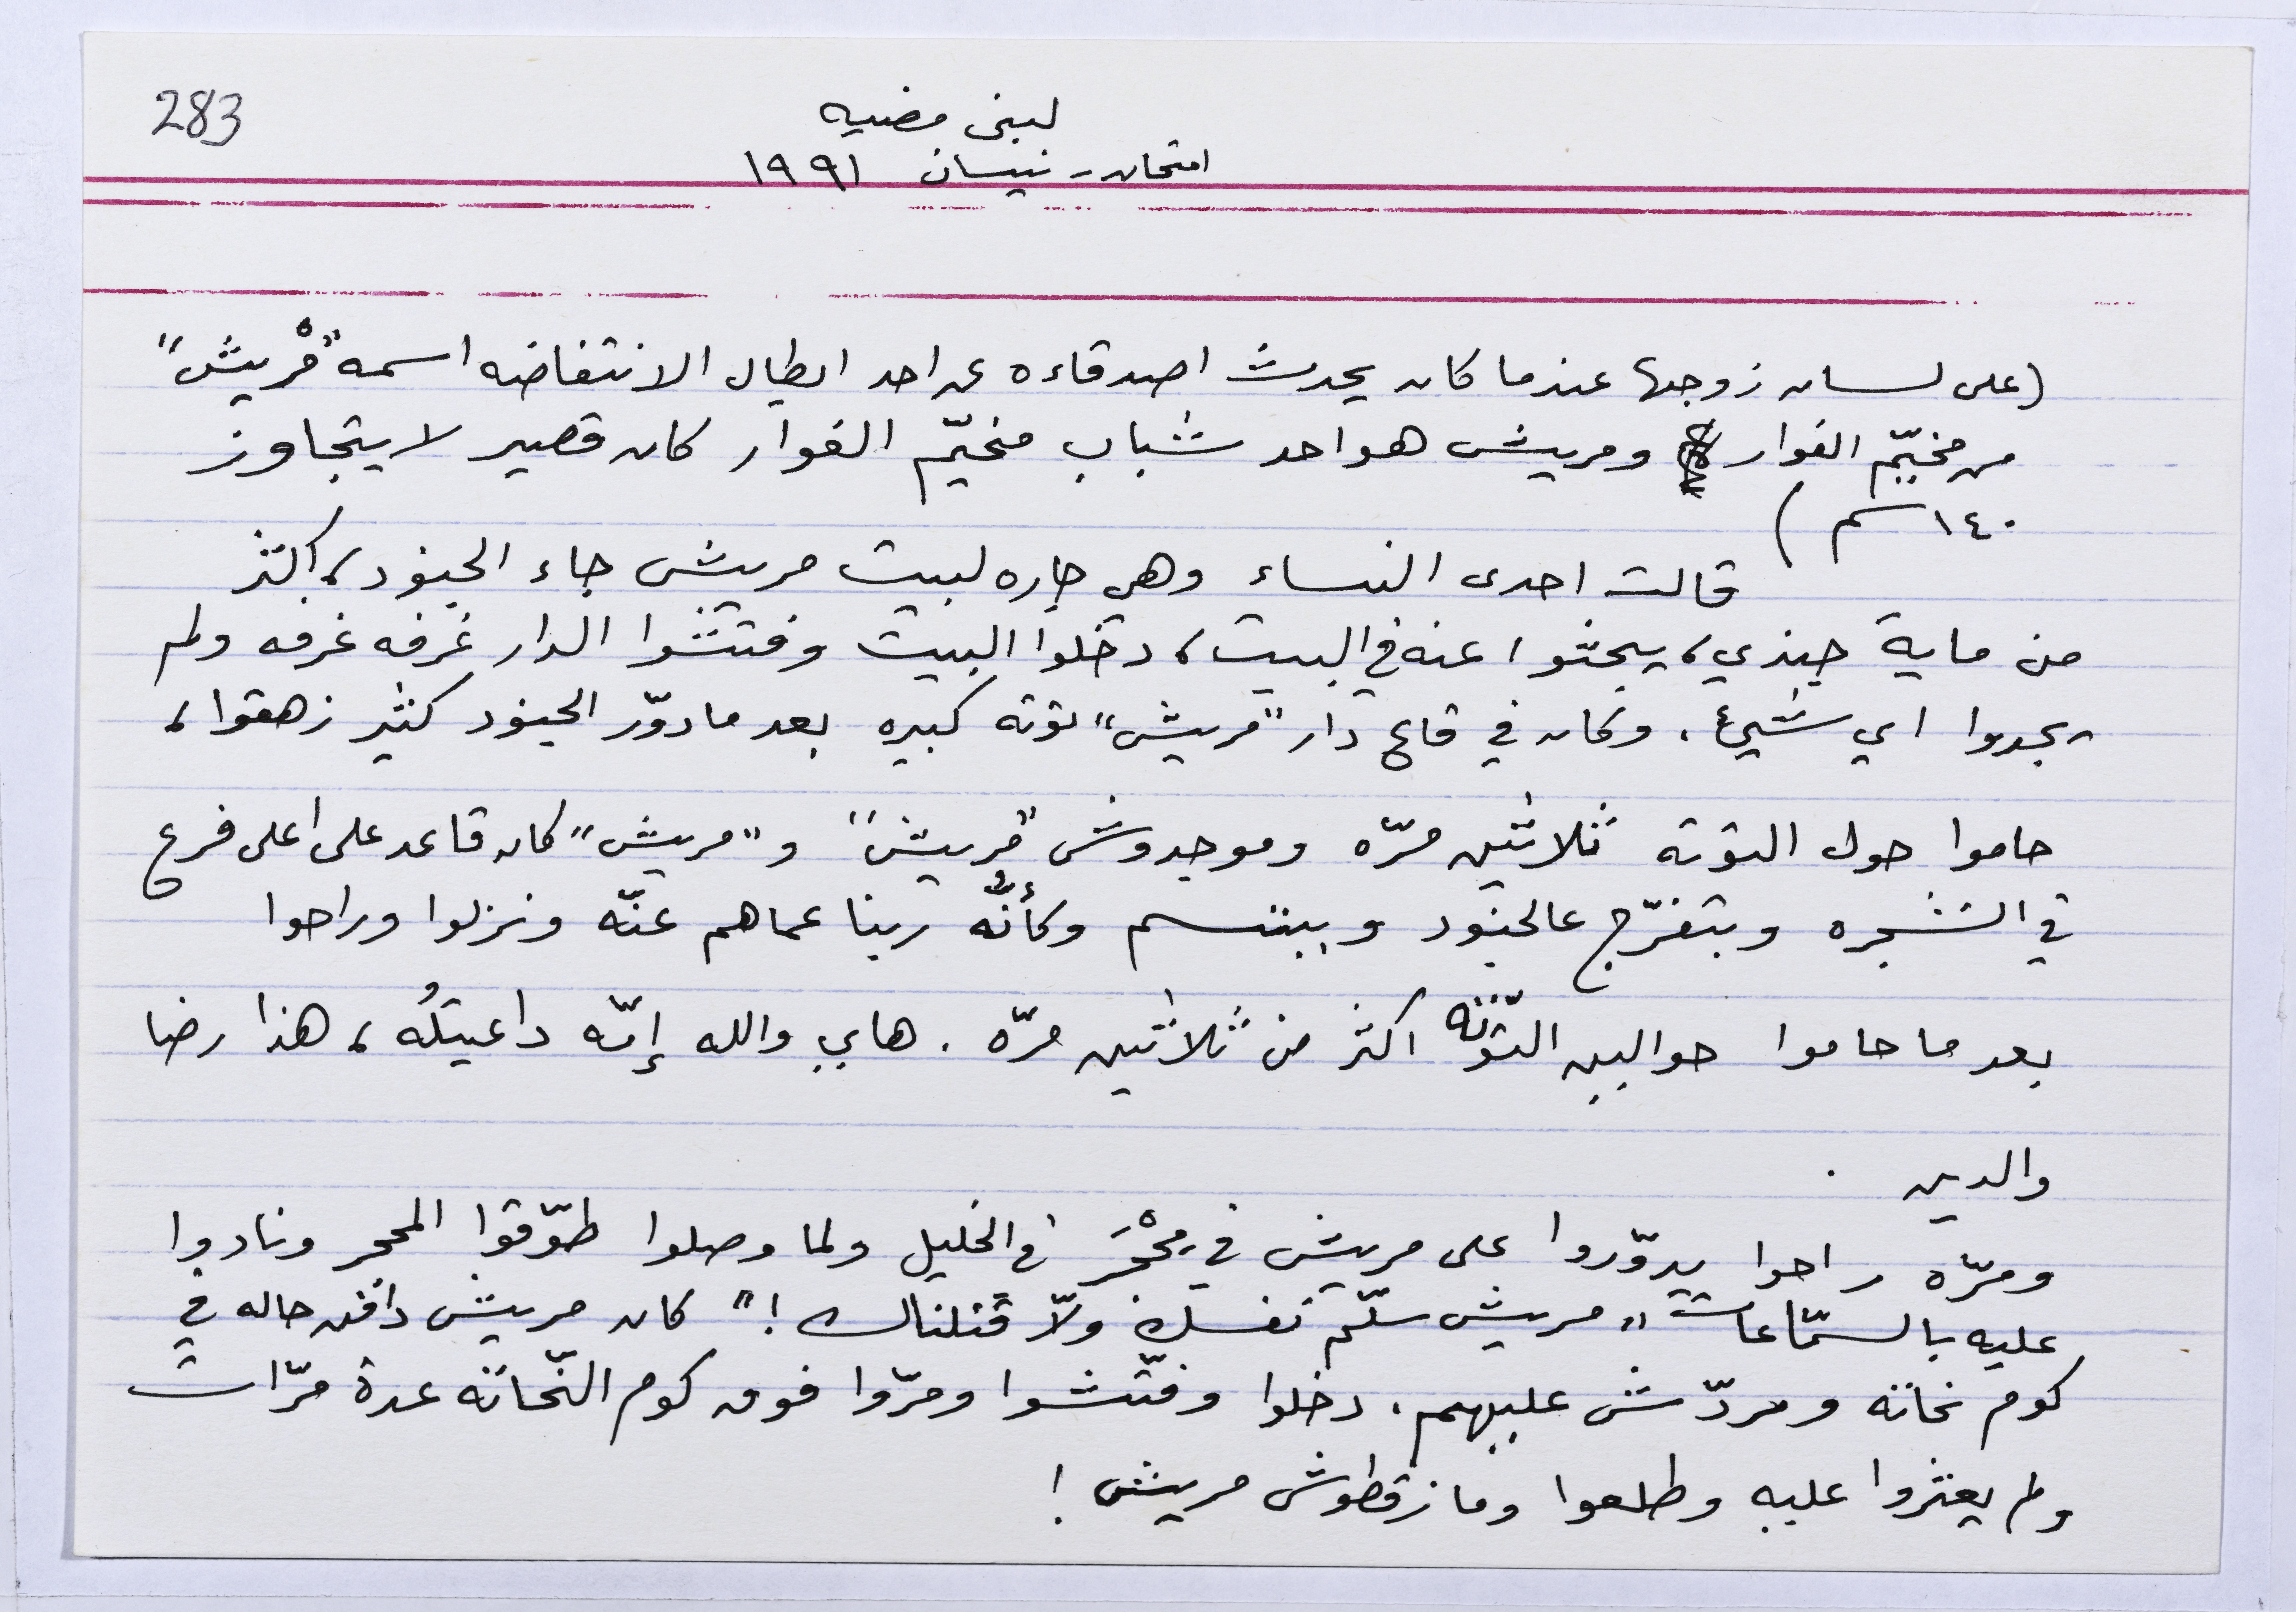 283
لبنى مضيه
امتحان - نيسان ١٩٩١
(على لسان زوجها عندما كان يحدث اصدقاءه عن احد ابطال الانتفاضه اسمه "مْريش"
من مخيّم الفوار ومريش هو احد شباب مخيّم الفوار كان قصير لا يتجاوز
١٤٠ سم )
قالت احدى النساء وهي جاره لبيت مريش جاء الجنود، اكثر
من ماية جندي، يبحثوا عنه في البيت، دخلوا البيت وفتشوا الدار غرفه غرفه ولم
يجدوا اي شيئ. وكان في قاع دار "مريش" توته كبيره بعد ما دوّر الجنود كثير زهقوا،
حاموا حول التوته ثلاثين مرّه وموجدوش "مريش" و "مريش" كان قاعد على اعلى فرع
في الشجره وبتفرّج عالجنود وببتسم وكأنُّه ربنا عماهم عنّه ونزلوا وراحوا
بعد ما حاموا حوالين التّوته اكثر من ثلاثين مرّه. هاي والله إمّه داعيتلُه، هذا رضا
والدين.
ومرّه راحوا يدوّروا على مريش في محْجَر في الخليل ولما وصلوا طوّقوا المحجر ونادوا
عليه بالسمّاعات "مريش سلّم نفسك ولّا قتلناك!" كان مريش دافن حاله في
كوم نحاته ومردّش عليهم. دخلوا وفتّشوا ومرّوا فوق كوم النّحاته عدة مرّات
ولم يعثروا عليه وطلعوا وما زقطوش مريش!